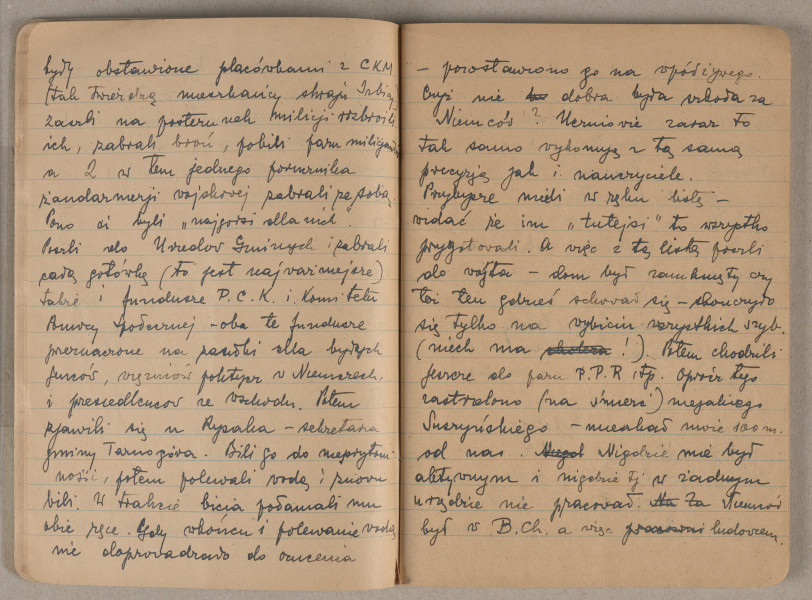 były obstawione placówkami z CKM
(tak twierdzą mieszkańcy skraju Izbicy
zaszli na posterunek milicji rozbroili
ich, zabrali broń, pobili paru milicjantów
a 2 w tem jednego porucznika
żandarmerji wojskowej zabrali ze sobą.
Pono ci byli „najgorsi dla nich".
Poszli do Urzędów Gminnych i zabrali
całą gotówkę (to jest najważniejsze)
także i fundusze P.C.K. i Komitetu
Pomocy Społecznej - oba te fundusze
przeznaczone na zasiłki dla byłych
jeńców, więźniów polityczn w Niemczech,
i przesiedleńców ze wschodu. Potem
zjawili się u Rysaka - sekretarza
gminy Tarnogóra. Bili go do nieprzytom-
ności, potem polewali wodą i znowu
bili. W trakcie bicia połamali mu
obie ręce. Gdy wkońcu i polewanie wodą
nie doprowadzało do ocucenia
- pozostawiono go na wpółżywego.
Czyż nie dobra była szkoła za
Niemców? Uczniowie zaraz to
tak samo wykonują z tą samą
precyzją jak i nauczyciele.
Przybysze mieli w ręku listę -
widać że im „tutejsi" to wszystko
przygotowali. A więc z tą listą poszli
do wójta - dom był zamknięty czy
też ten gdzieś schował się - skończyło
się tylko na wybiciu wszystkich szyb.
(niech ma cholera!). Potem chodzili
jeszcze do paru P.P.R itp. Oprócz tego
zastrzelono (na śmierć) niejakiego
Suszyńskiego - mieszkał może 100 m.
od nas. Nigdzie nie był
aktywnym i nigdzie tj w żadnym
urzędzie nie pracował. Na Za Niemców
był w B.Ch. a więc ludowcem.